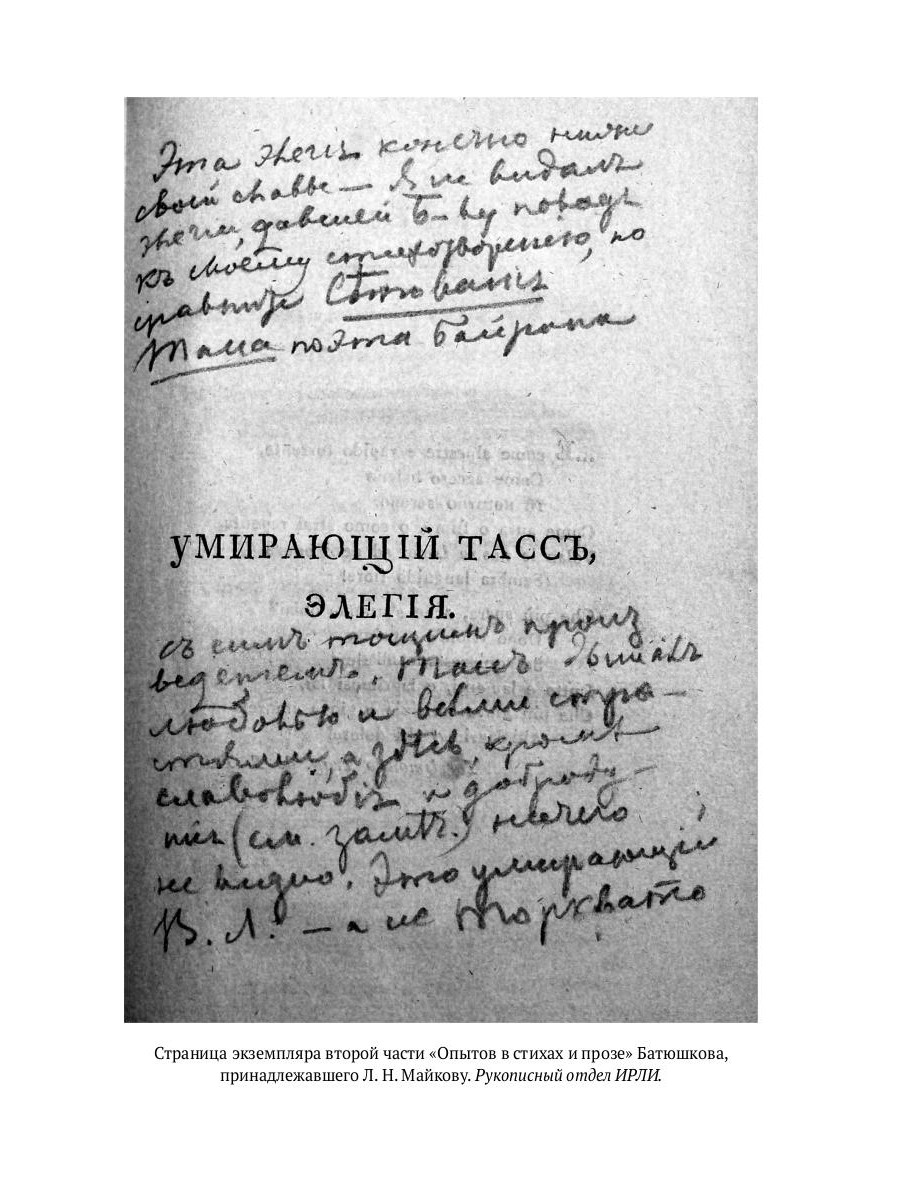 Эта элегія конечно ниже
своей славы — Я не видалъ
элегіи, давшей Б–ву поводъ
къ своему стихотворенію, но
сравните Сѣтованія
Тасса поэта Байрона
УМИРАЮЩІЙ ТАССЪ,
ЭЛЕГІЯ.
съ симъ тощимъ произ
веденіемъ. Тассъ дышалъ
любовью и всѣми стра–
стями, а здѣсь, кромѣ
славолюбія и доброду–
шія (см. замѣч.) ничего
не видно. Это умирающій
В. Л. — а не Торквато
Страница экземпляра второй части «Опытов в стихах и прозе» Батюшкова,
принадлежавшего Л. Н. Майкову. Рукописный отдел ИРЛИ.